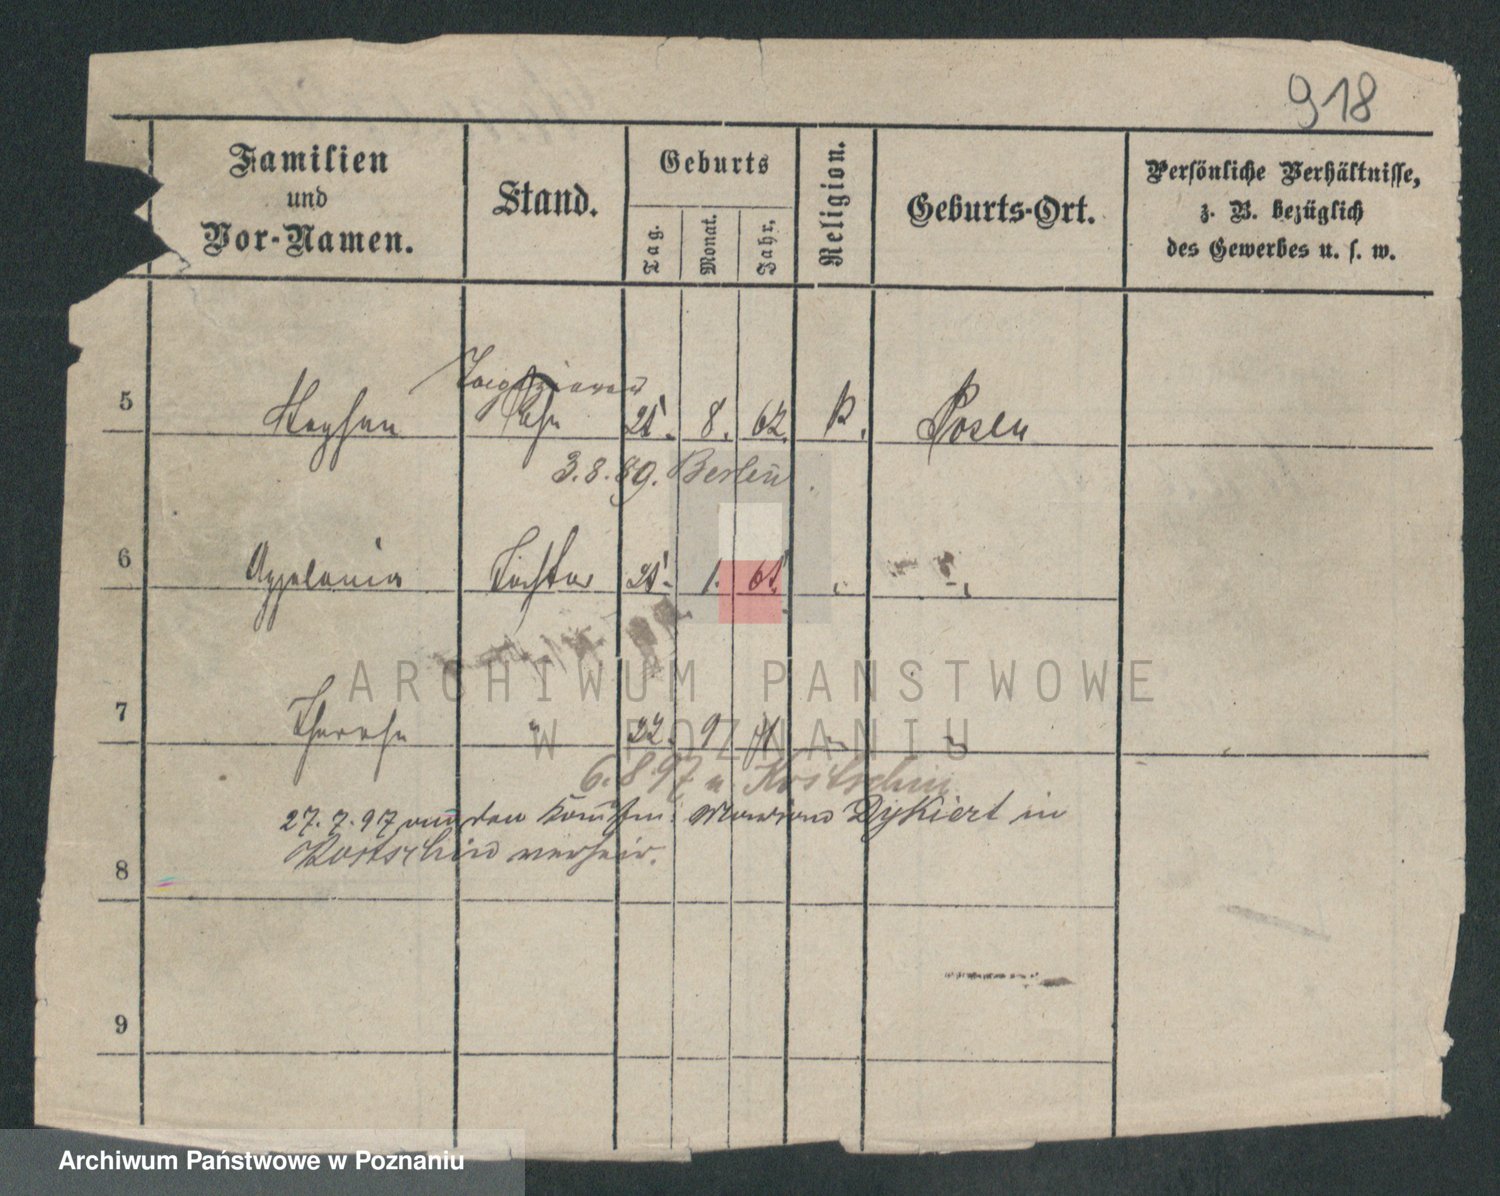 918
Familien
und
Vor-Namen.
Stand.
Geburts
Tag.
Monat.
Jahr.
Religion.
Geburts-Ort.
Persönliche Verhältnisse,
z. B. bezüglich
des Gewerbes u. s. w.
5 Stephan Sohn 25. 8. 62. k. Posen
3.8.89. Berlin
6 Appolonia Tochter 25. 1. 65. " "
7 Therese " 22. 9 71 " "
6.8.97 n Kostschin
27.7.97 an den Marian Dykiert in
Kostschin verheir.
8
9
ARCHIWUM PAŃSTWOWE
W POZNANIU
Archiwum Państwowe w Poznaniu